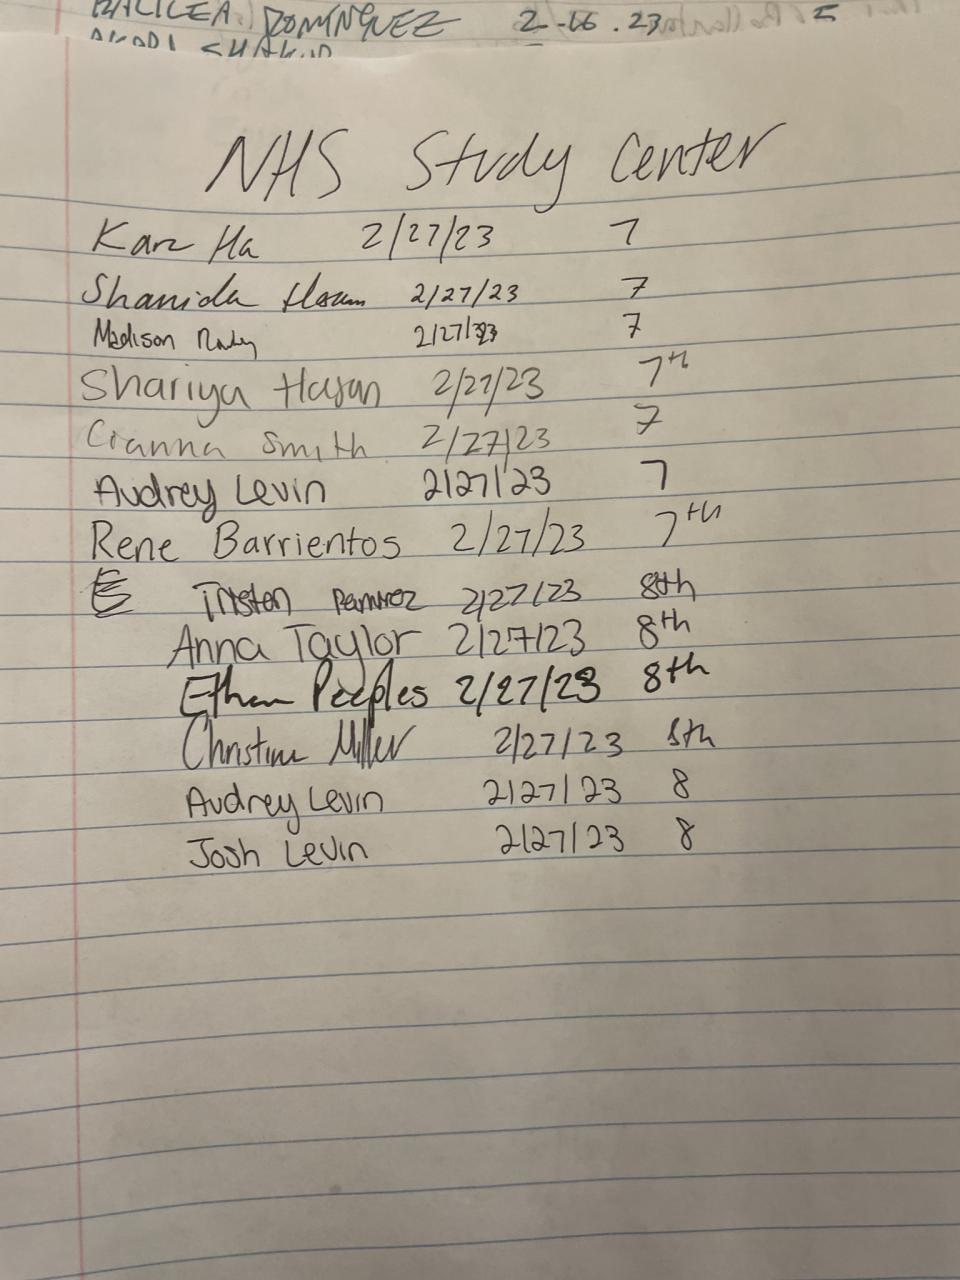 DOMINGUEZ 2-16.23 5
NHS Study Center
Kare Ha 2/27/23 7
Shanida 2/27/23 7
Madison 2/27/23 7
Shariya Hasan 2/27/23 7th
Cianna Smith 2/27/23 7
Audrey Levin 2/27/23 7
Rene Barrientos 2/27/23 7th
Tristen Ramirez 2/27/23 8th
Anna Taylor 2/27/23 8th
Ethan Peeples 2/27/23 8th
Christine Miller 2/27/23 8th
Audrey Levin 2/27/23 8
Josh Levin 2/27/23 8